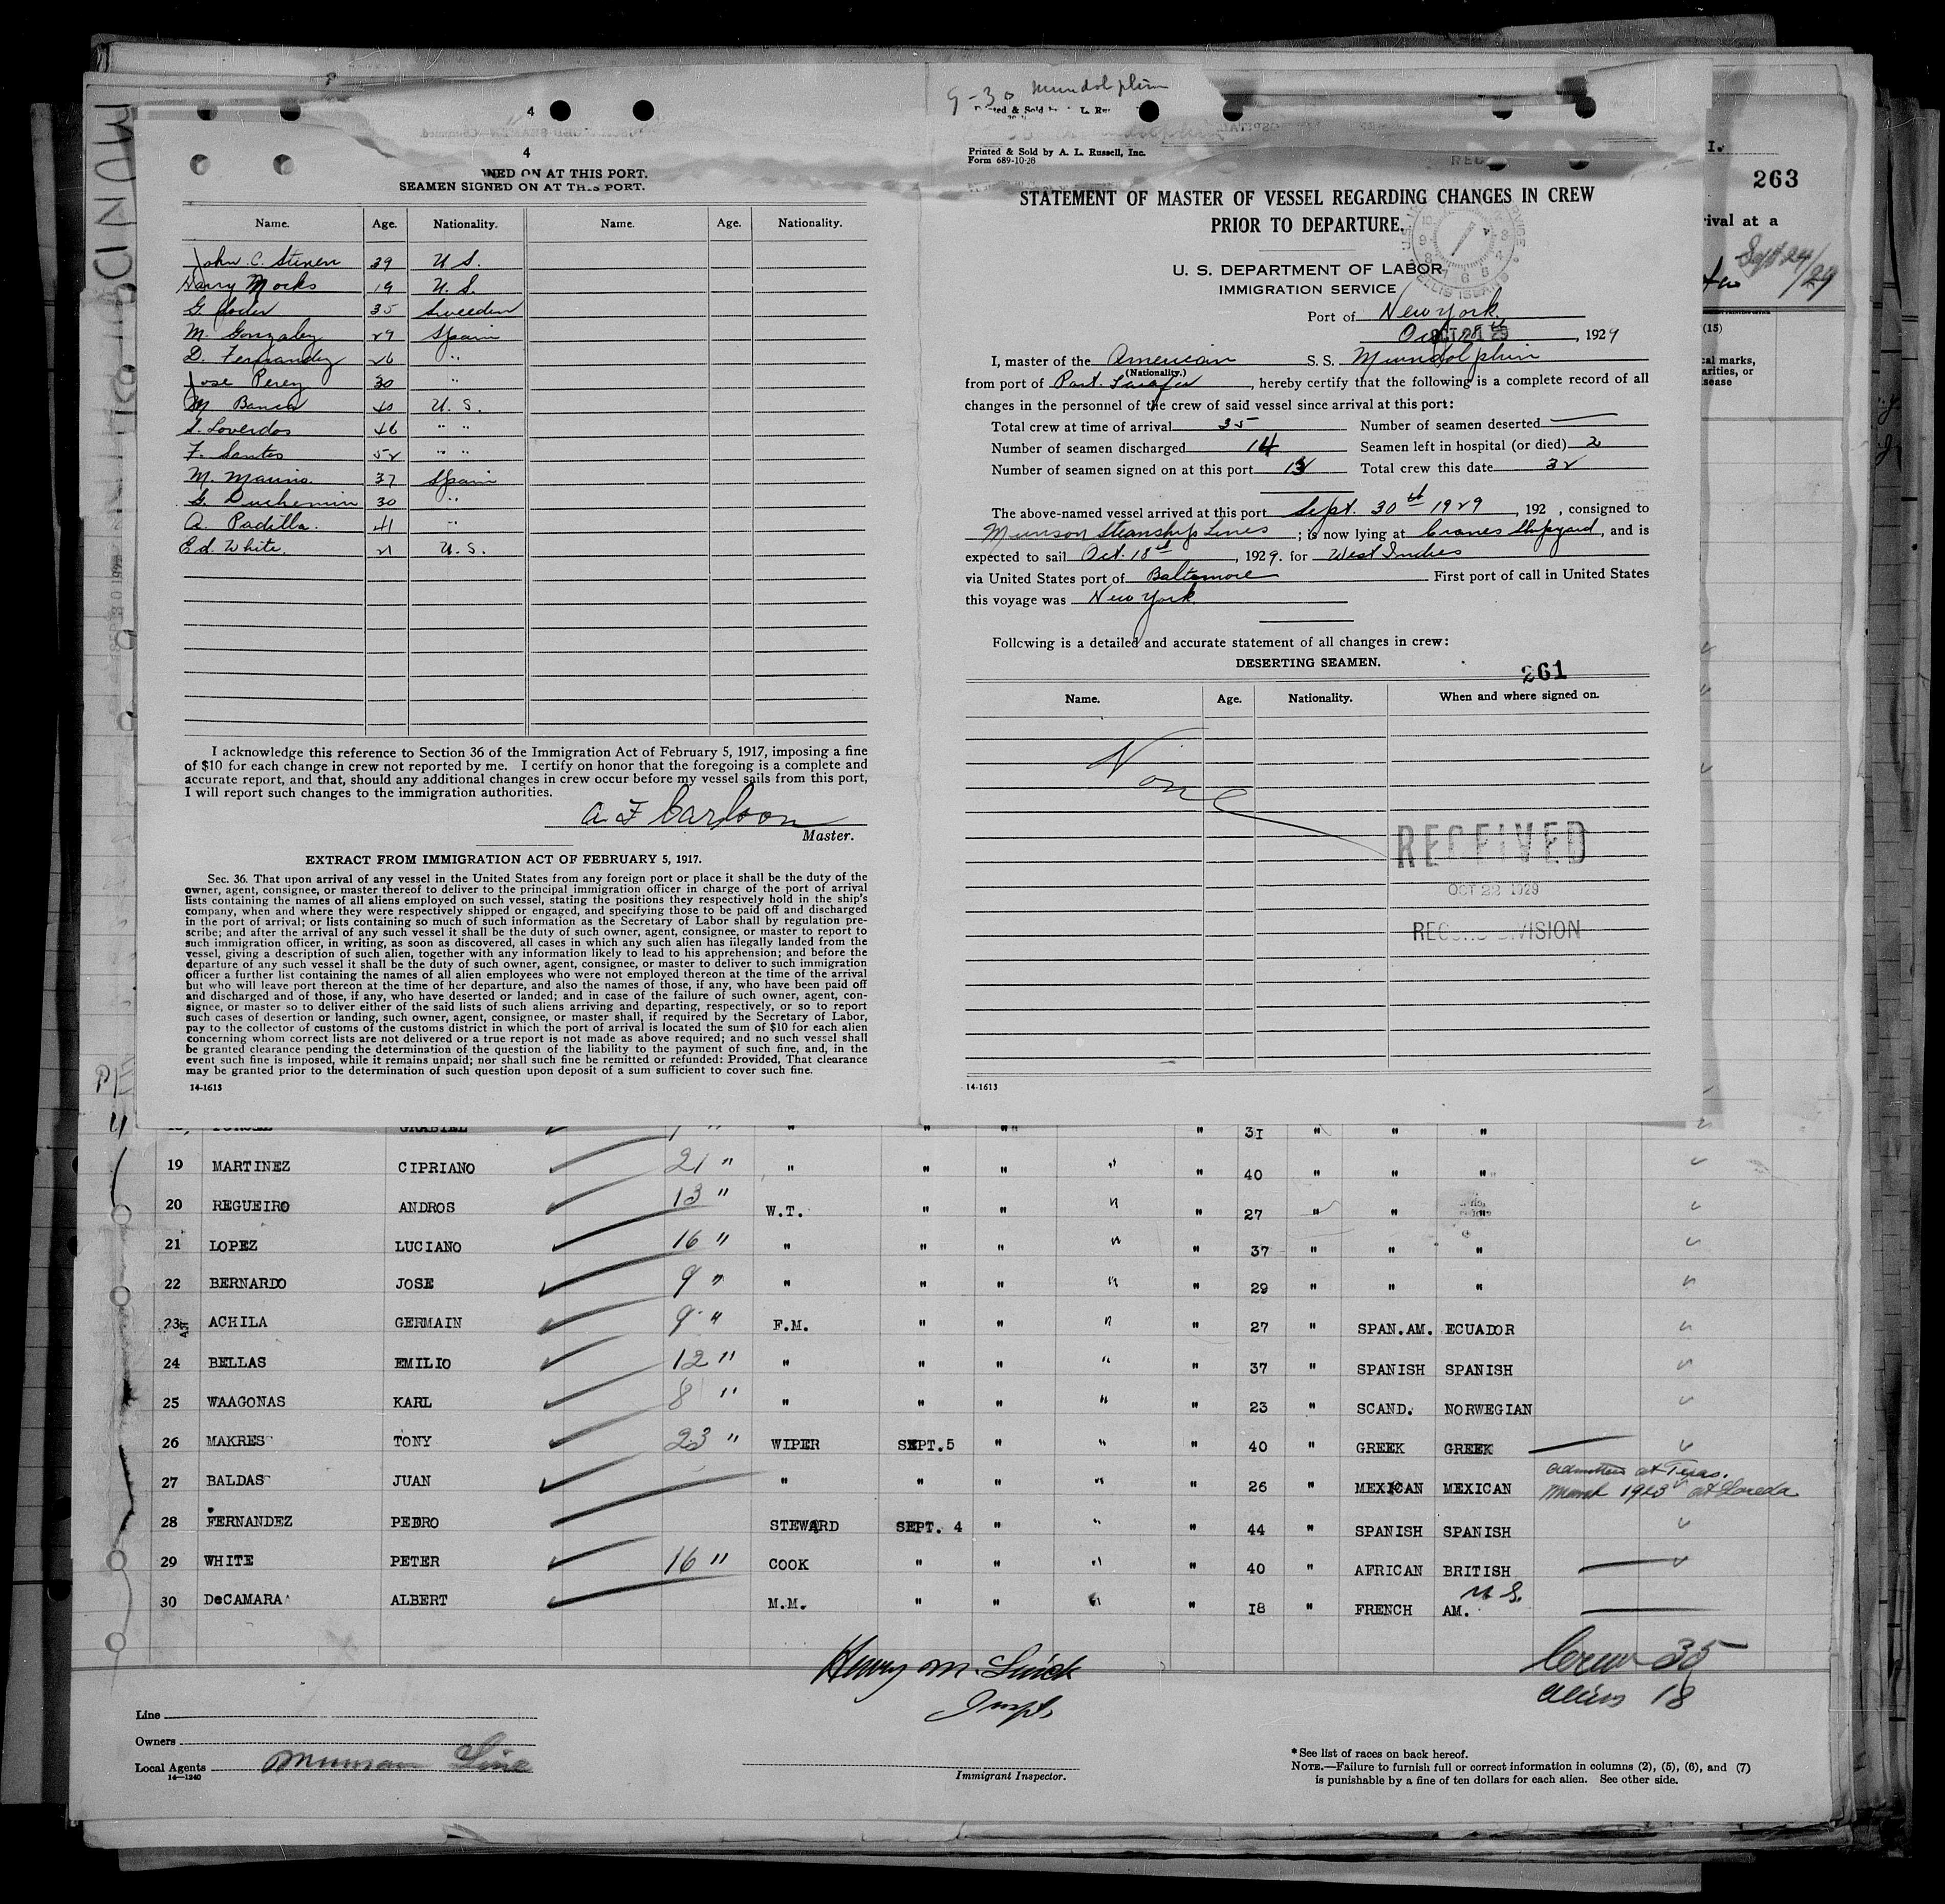 9-30 Mundolphin
4
4
SEAMEN SIGNED ON AT THIS PORT.
Name. Age. Nationality. Name. Age. Nationality.
John C. Steven 39 U S.
Harry Mocks 19 U. S.
G. 35 Sweeden
M. Gonzalez 29 Spain
D. Fernandez 26 "
Jose Perez 30 "
M 40 U. S.
S. Loverdos 46 " "
F. Santos 52 " "
M. Marino. 37 Spain
G. Duchemin 30 "
A. Padilla. 41 "
Ed. White. 21 U.S.
I acknowledge this reference to Section 36 of the Immigration Act of February 5, 1917, imposing a fine
of $10 for each change in crew not reported by me. I certify on honor that the foregoing is a complete and
accurate report, and that, should any additional changes in crew occur before my vessel sails from this port,
I will report such changes to the immigration authorities.
A. F Carlson
Master.
EXTRACT FROM IMMIGRATION ACT OF FEBRUARY 5, 1917.
Sec. 36. That upon arrival of any vessel in the United States from any foreign port or place it shall be the duty of the
owner, agent, consignee, or master thereof to deliver to the principal immigration officer in charge of the port of arrival
lists containing the names of all aliens employed on such vessel, stating the positions they respectively hold in the ship's
company, when and where they were respectively shipped or engaged, and specifying those to be paid off and discharged
in the port of arrival; or lists containing so much of such information as the Secretary of Labor shall by regulation pre-
scribe; and after the arrival of any such vessel it shall be the duty of such owner, agent, consignee, or master to report to
such immigration officer, in writing, as soon as discovered, all cases in which any such alien has illegally landed from the
vessel, giving a description of such alien, together with any information likely to lead to his apprehension; and before the
departure of any such vessel it shall be the duty of such owner, agent, consignee, or master to deliver to such immigration
officer a further list containing the names of all alien employees who were not employed thereon at the time of the arrival
but who will leave port thereon at the time of her departure, and also the names of those, if any, who have been paid off
and discharged and of those, if any, who have deserted or landed; and in case of the failure of such owner, agent, con-
signee, or master so to deliver either of the said lists of such aliens arriving and departing, respectively, or so to report
such cases of desertion or landing, such owner, agent, consignee, or master shall, if required by the Secretary of Labor,
pay to the collector of customs of the customs district in which the port of arrival is located the sum of $10 for each alien
concerning whom correct lists are not delivered or a true report is not made as above required; and no such vessel shall
be granted clearance pending the determination of the question of the liability to the payment of such fine, and, in the
event such fine is imposed, while it remains unpaid; nor shall such fine be remitted or refunded: Provided, That clearance
may be granted prior to the determination of such question upon deposit of a sum sufficient to cover such fine.
14-1613
Printed & Sold by A. L. Russell, Inc.
Form 689-10-28
STATEMENT OF MASTER OF VESSEL REGARDING CHANGES IN CREW
PRIOR TO DEPARTURE.
U. S. DEPARTMENT OF LABOR
IMMIGRATION SERVICE
Port of New York
Oct 18th, 1929
I, master of the American S. S. Mundolphin
(Nationality.)
from port of Port, hereby certify that the following is a complete record of all
changes in the personnel of the crew of said vessel since arrival at this port:
Total crew at time of arrival 35 Number of seamen deserted —
Number of seamen discharged 14 Seamen left in hospital (or died) 2
Number of seamen signed on at this port 13 Total crew this date 32
The above-named vessel arrived at this port Sept. 30th 1929, 192 , consigned to
Munson Steamship Lines ; is now lying at Cranes Shipyard, and is
expected to sail Oct. 18th, 1929. for West Indies
via United States port of Baltemore First port of call in United States
this voyage was New York
Following is a detailed and accurate statement of all changes in crew:
DESERTING SEAMEN.
261
Name. Age. Nationality. When and where signed on.
None
RECEIVED
OCT 22 1929
RECORD DIVISION
14-1613
263
rival at a
Sept 24/29
(15)
cal marks,
arities, or
sease
31 " " "
19 MARTINEZ CIPRIANO 21 " " " " " " 40 " " "
20 REGUEIRO ANDROS 13 " W.T. " " " " 27 " " "
21 LOPEZ LUCIANO 16 " " " " " " 37 " " "
22 BERNARDO JOSE 9 " " " " " " 29 " " "
23 ACHILA GERMAIN 9 " F.M. " " " " 27 " SPAN.AM. ECUADOR
24 BELLAS EMILIO 12 " " " " " " 37 " SPANISH SPANISH
25 WAAGONAS KARL 8 " " " " " " 23 " SCAND. NORWEGIAN
26 MAKRES TONY 23 " WIPER SEPT.5 " " " 40 " GREEK GREEK
27 BALDAS JUAN " " " " " 26 " MEXICAN MEXICAN admitted at Texas. March 1923 at Loredo
28 FERNANDEZ PEDRO STEWARD SEPT. 4 " " " 44 " SPANISH SPANISH
29 WHITE PETER 16 " COOK " " " " 40 " AFRICAN BRITISH
30 DeCAMARA ALBERT M.M. " " " " 18 " FRENCH AM. U S.
Crew 35
Aliens 18
Line
Owners
Local Agents Munson Line
14—1240
Immigrant Inspector.
*See list of races on back hereof.
NOTE.—Failure to furnish full or correct information in columns (2), (5), (6), and (7)
is punishable by a fine of ten dollars for each alien. See other side.